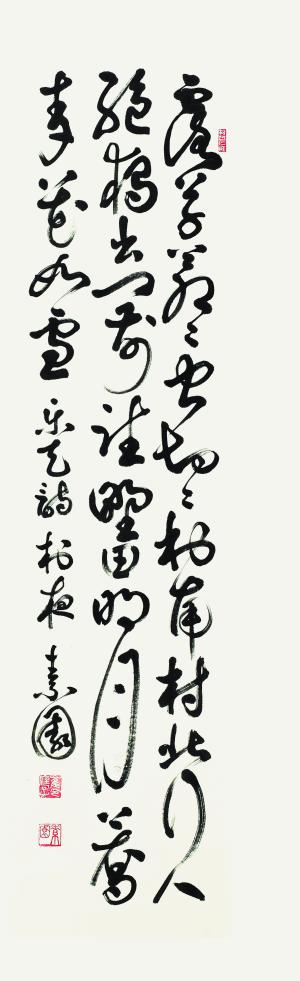 霜草蒼々虫切々村南村北行人
絶獨出門前望野田明月蕎
麦花如雪 樂天詩 村夜 素園